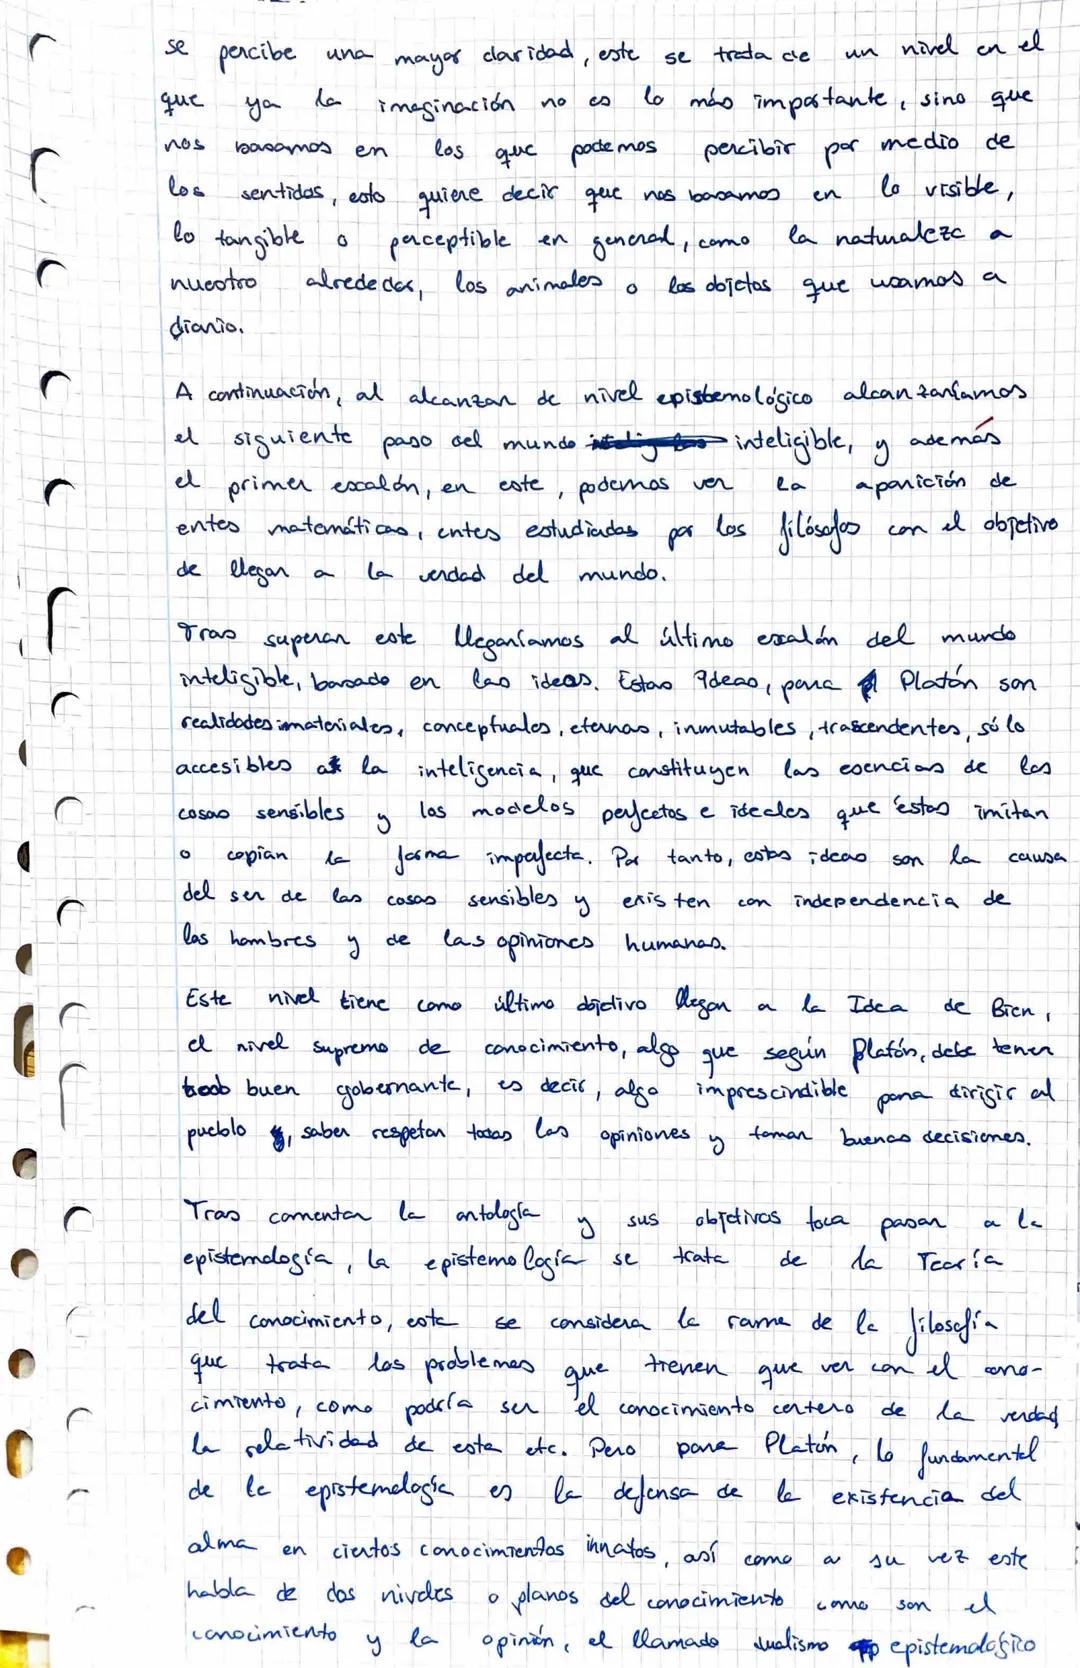 se percibe una mayor claridad, este se trata de un nivel en el
que ya la imaginación no es lo más importante, sino que
nos basamos en los que podemos percibir por medio de
los sentidos, esto quiere decir que nos basamos en lo visible,
lo tangible o perceptible en general, como la naturaleza a
nuestro alrededor, los animales o los objetos que usamos a
diario.
A continuación, al alcanzar de nivel epistemológico alcanzaríamos
el siguiente paso del mundo inteligible, y además
el primer escalón, en este, podemos ver la aparición de
entes matemáticos, entes estudiados por los filósofos con el objetivo
de llegar a la verdad del mundo.
Tras superar este llegaríamos al último escalón del mundo
inteligible, basado en las ideas. Estas Ideas, para Platón son
realidades imateriales, conceptuales, eternas, inmutables, trascendentes, sólo
accesibles a la inteligencia, que constituyen las esencias de las
cosas sensibles y los modelos perfectos e ideales que éstas imitan
o copian la forma imperfecta. Por tanto, estas ideas son la causa
del ser de las cosas sensibles y existen con independencia de
los hombres y de las opiniones humanas.
Este nivel tiene como último objetivo llegar a la Idea de Bien,
el nivel supremo de conocimiento, algo que según Platón, debe tener
buen gobernante, es decir, algo imprescindible para dirigir al
pueblo, saber respetar todas las opiniones y tomar buenas decisiones.
Tras comentar la ontología y sus objetivos toca pasar a la
epistemología, la epistemología se trata de la Teoría
del conocimiento, esta se considera la rama de la filosofía
que trata los problemas que tienen que ver con el cono-
cimiento, como podría ser el conocimiento certero de la verdad
la relatividad de esta etc. Pero para Platón, lo fundamental
de la epistemología es la defensa de la existencia del
alma en ciertos conocimientos innatos, así como a su vez este
habla de dos niveles o planos del conocimiento como son el
conocimiento y la opinión, el llamado dualismo epistemológico